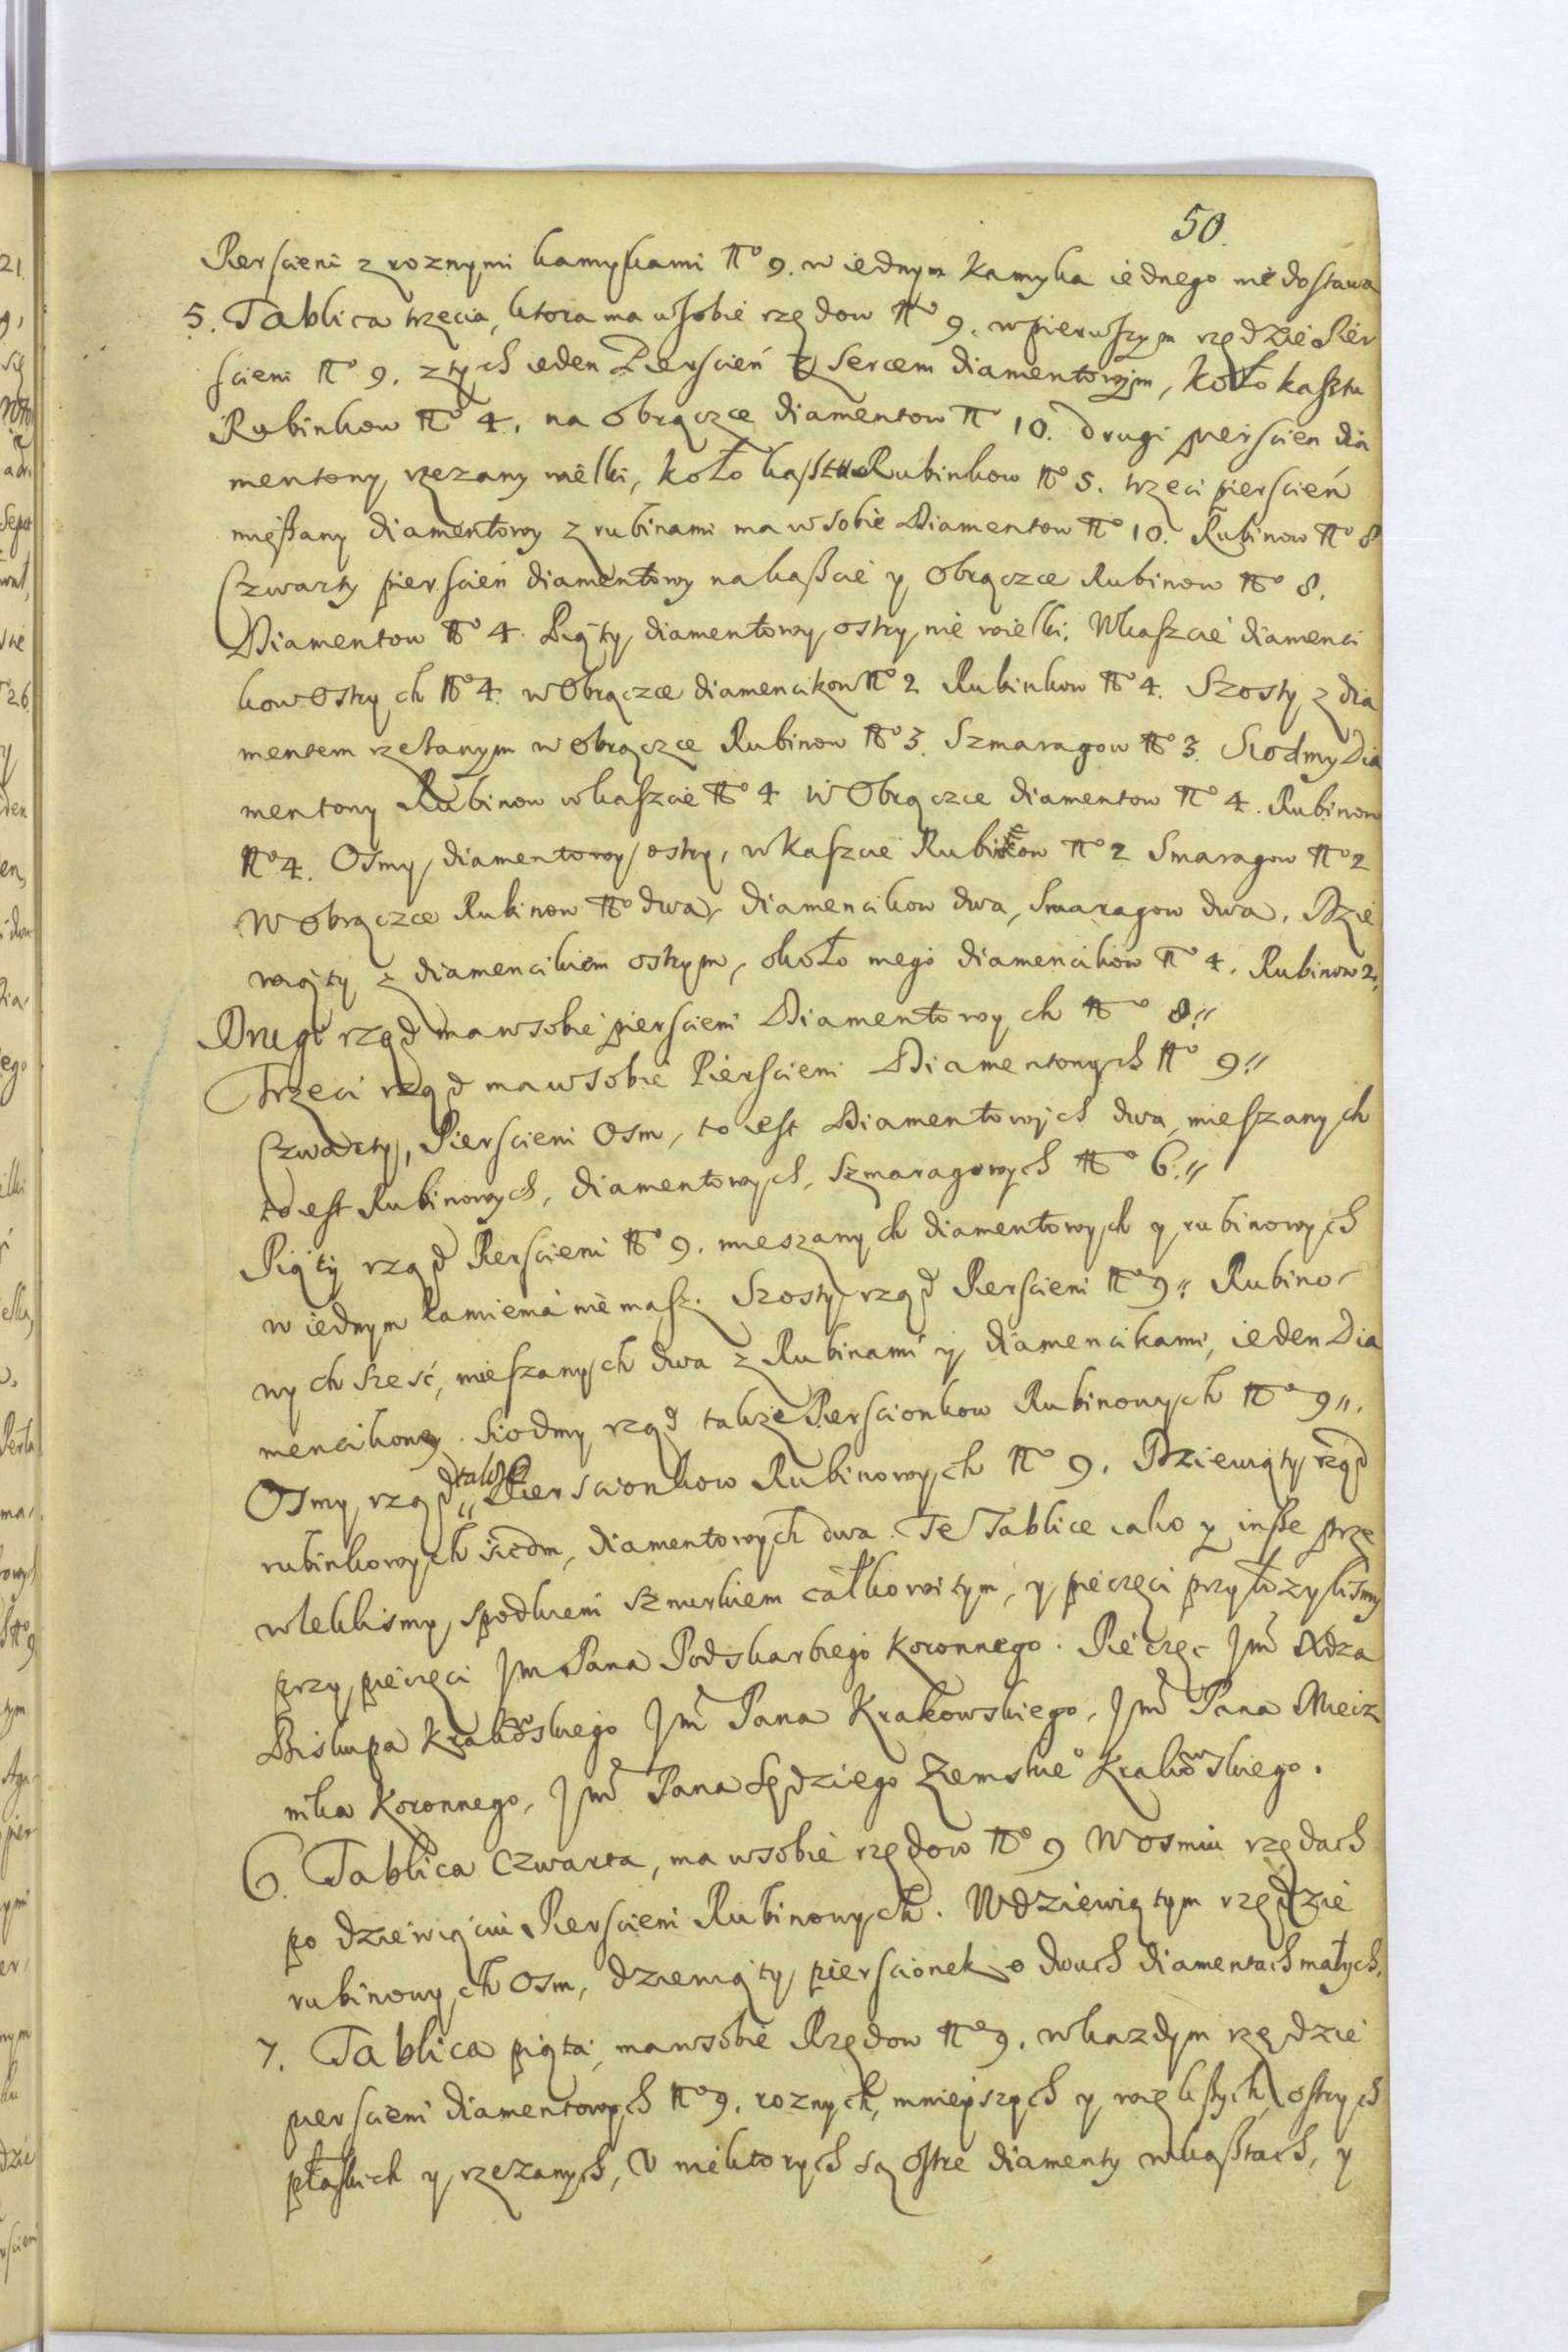 50.
Pierscieni z roznymi kamykami No 9. w iednym Kamyka iednego nie dostawa
5. Tablica trzecia, ktora ma w sobie rzędow No 9. w pierwszym rzędzie Pier
scieni No 9. z tych ieden Pierscień z Sercem diamentowym, koło kasztu
Rubinkow No 4., na obrączce diamentow No 10. drugi pierscien dia
mentowy rzezany wielki, koło kasztu Rubinkow No 5. trzeci pierscień
mięszany diamentowy z rubinami ma w sobie Diamentow No 10. Rubinow No 8
Czwarty pierscień diamentowy na kaszcie y obrączce Rubinow No 8.
Diamentow No 4. Piąty, diamentowy, ostry, nie wielki, W kaszcie diamenci
kow ostrych No 4. w Obrączce diamencikow No 2 Rubinkow No 4. Szosty z dia
mentem rzezanym w obrączce Rubinow No 3. Szmaragow No 3. Siodmy Dia
mentowy Rubinow w kaszcie No 4 w Obrączce diamentow No 4. Rubinow
No 4. Osmy, diamentowy ostry, w kaszcie Rubinow No 2 Smaragow No 2
W obrączce Rubinow No dwa, diamencikow dwa, Smaragow dwa. Dzie
wiąty z diamencikiem ostrym, około niego diamencikow No 4. Rubinow 2.
Drugi rząd ma w sobie pierscieni Diamentowych No 8.
Trzeci rząd ma w sobie Pierscieni Diamentowych No 9.
Czwarty, Pierscieni Osm, to iest Diamentowych dwa, mieszanych
to iest Rubinowych, diamentowych, Szmaragowych No 6.
Piąty rząd Pierscieni No 9. mieszanych diamentowych y rubinowych
w iednym kamienia nie masz. Szosty rząd Pierscieni No 9. Rubino-
wych szesć, mieszanych dwa z Rubinami y diamencikami, ieden Dia
mencikowy. Siodmy rząd takze Pierscionkow Rubinowych No 9.
Osmy rząd takze Pierscionkow Rubinowych No 9. Dziewiąty rząd
rubinkowych siedm, diamentowych dwa. Te Tablice iako y insze prze
wleklismy, spodkiem sznurkiem całkowitym, y pieczęci przyłozylismy
przy pieczęci Jm Pana Podskarbiego Koronnego. Pieczęć Jm Xdza
Biskupa Krakowskiego Jm Pana Krakowskiego, Jm Pana Miecz
nika Koronnego, Jm Pana Sędziego Zemskieo Krakowskiego.
6. Tablica Czwarta, ma w sobie rzędow No 9 W osmiu rzędach
po dziewiąciu Pierscieni Rubinowych. W dziewiątym rzędzie
rubinowych osm, dziewiąty pierscionek o dwuch diamentach małych.
7. Tablica piąta, ma w sobie Rzędow No 9. w kazdym rzędzie
pierscieni diamentowych No 9. roznych, mnieyszych y większych, ostrych
płaskich y rzezanych, U niektorych są ostre diamenty w kasztach, y